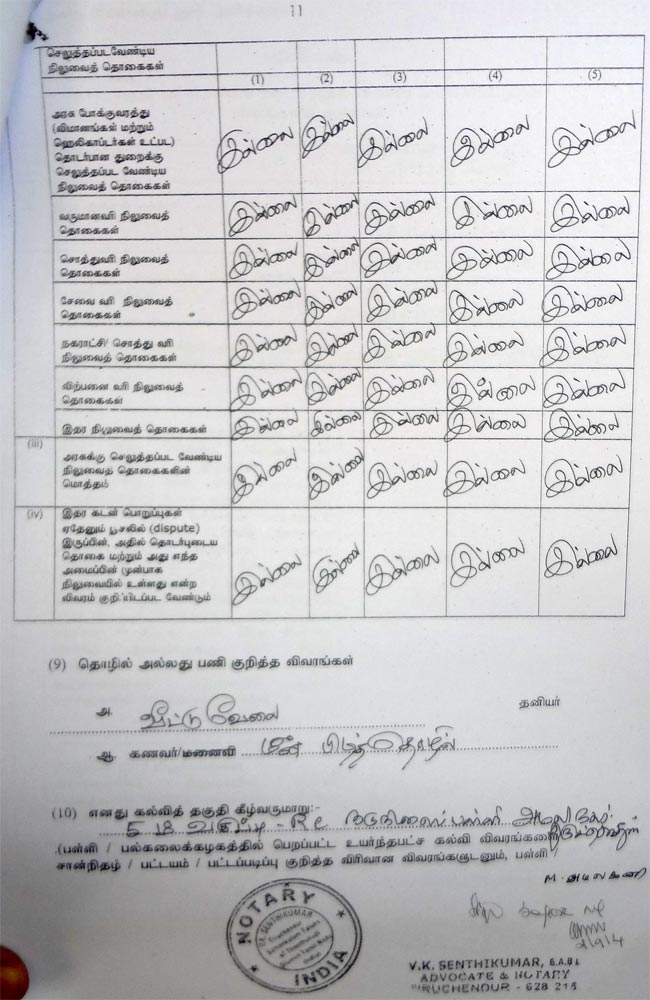 11
செலுத்தப்படவேண்டிய
நிலுவைத் தொகைகள்
(1) (2) (3) (4) (5)
அரசு போக்குவரத்து
(விமானங்கள் மற்றும்
ஹெலிகாப்டர்கள் உட்பட)
தொடர்பான துறைக்கு
செலுத்தப்பட வேண்டிய
நிலுவைத் தொகைகள்
இல்லை இல்லை இல்லை இல்லை இல்லை
வருமானவரி நிலுவைத்
தொகைகள்
இல்லை இல்லை இல்லை இல்லை இல்லை
சொத்துவரி நிலுவைத்
தொகைகள்
இல்லை இல்லை இல்லை இல்லை இல்லை
சேவை வரி நிலுவைத்
தொகைகள்
இல்லை இல்லை இல்லை இல்லை இல்லை
நகராட்சி/ சொத்து வரி
நிலுவைத் தொகைகள்
இல்லை இல்லை இல்லை இல்லை இல்லை
விற்பனை வரி நிலுவைத்
தொகைகள்
இல்லை இல்லை இல்லை இல்லை இல்லை
இதர நிலுவைத் தொகைகள்
இல்லை இல்லை இல்லை இல்லை இல்லை
(iii)
அரசுக்கு செலுத்தப்பட வேண்டிய
நிலுவைத் தொகைகளின்
மொத்தம்
இல்லை இல்லை இல்லை இல்லை இல்லை
(iv)
இதர கடன் பொறுப்புகள்
ஏதேனும் பூசலில் (dispute)
இருப்பின், அதில் தொடர்புடைய
தொகை மற்றும் அது எந்த
அமைப்பின் முன்பாக
நிலுவையில் உள்ளது என்ற
விவரம் குறிப்பிடப்பட வேண்டும்
இல்லை இல்லை இல்லை இல்லை இல்லை
(9) தொழில் அல்லது பணி குறித்த விவரங்கள்
அ. வீட்டு வேலை தனியர்
ஆ. கணவர்/மனைவி மீன் பிடித்தொழில்
(10) எனது கல்வித் தகுதி கீழ்வருமாறு:-
5 ம் வகுப்பு - R.C நடுநிலைப்பள்ளி அமலி நகர்
திருச்செந்தூர்
(பள்ளி / பல்கலைக்கழகத்தில் பெறப்பட்ட உயர்ந்தபட்ச கல்வி விவரங்களை
சான்றிதழ் / பட்டயம் / பட்டப்படிப்பு குறித்த விரிவான விவரங்களுடனும், பள்ளி /
M. அமலகனி
NOTARY
V.K. SENTHIKUMAR
INDIA
V.K. SENTHIKUMAR, B.A.B.L
ADVOCATE & NOTARY
TIRUCHENDUR - 628 215